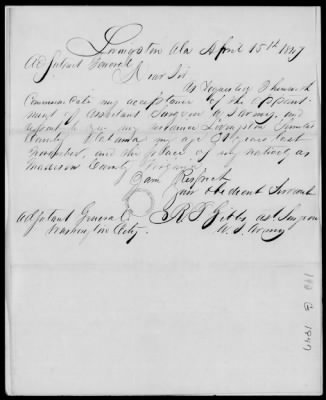 Livingston Ala April 15th 1847
Adjutant General
Dear Sir
As required I herewith
Communicate my acceptance of the appoint-
ment of Assistant Surgeon U.S. Army, and
my residence Livingston Sumter
County Alabama my age years last
November, and the place of my nativity as
Madison County Virginia
I am Respect
your obedient Servant
Adjutant General R. T. Gibbs asst Surgeon
Washington City. U.S. Army
199 G 1847